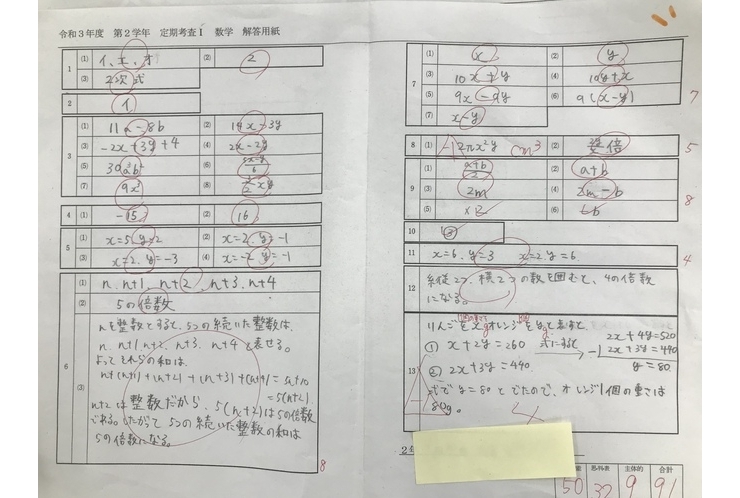 令和3年度 第2学年 定期考査Ⅰ 数学 解答用紙
1 (1) イ、エ、オ (2) 2
(3) 2次式
2 イ
3 (1) 11a-8b (2) 14x-3y
(3) -2x+3y+4 (4) 2x-2y
(5) 30ab² (6)
(7) 9x (8)
4 (1) -15 (2) 16
5 (1) x=5, y=2 (2) x=2, y=-1
(3) x=2, y=-3 (4) y=-1
6 (1) n, n+1, n+2, n+3, n+4
(2) 5の倍数
(3) nを整数とすると、5つの続いた整数は、
n, n+1, n+2, n+3, n+4と表せる。
よってそれらの和は、
n+(n+1)+(n+2)+(n+3)+(n+4)=5n+10
=5(n+2)
n+2は整数だから、5(n+2)は5の倍数
である。したがって5つの続いた整数の和は
5の倍数になる。
8
7 (1) x (2) y
(3) 10x+y (4) 10y+x
(5) 9x-9y (6) 9(x-y)
(7) x-y
7
8 (1) πx²y cm³ (2) 倍
5
9 (1) a+b/2 (2) a+b
(3) 2m (4) 2m-b
(5) (6)
8
10
11 x=6, y=3 x=2, y=6
4
12 縦2つ、横2つの数を囲むと、4の倍数
になる。
13 りんごをxgオレンジをygと表すと
① x+2y=260 式にすると 2x+4y=520
② 2x+3y=440 -) 2x+3y=440
y=80
式でy=80とでたので、オレンジ1個の重さは
80g。
4
2年
思・判・表 主体的 合計
50 32 9 91